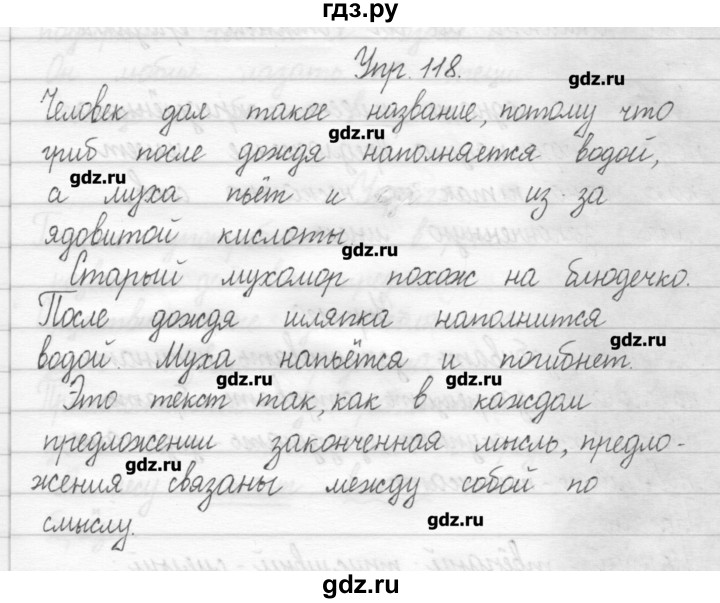 гдз.ру
Упр. 118.
gdz.ru
Человек дал такое название, потому что
gdz.ru
гриб после дождя наполняется водой,
gdz.ru
а муха пьёт и из-за
ядовитой кислоты
gdz.ru
Старый мухомор похож на блюдечко.
После дождя шляпка наполнится
gdz.ru
водой. Муха напьётся и погибнет.
gdz.ru gdz.ru
Это текст так, как в каждом
предложении законченная мысль, предло-
gdz.ru
жения связаны между собой по
смыслу.
gdz.ru
gdz.ru